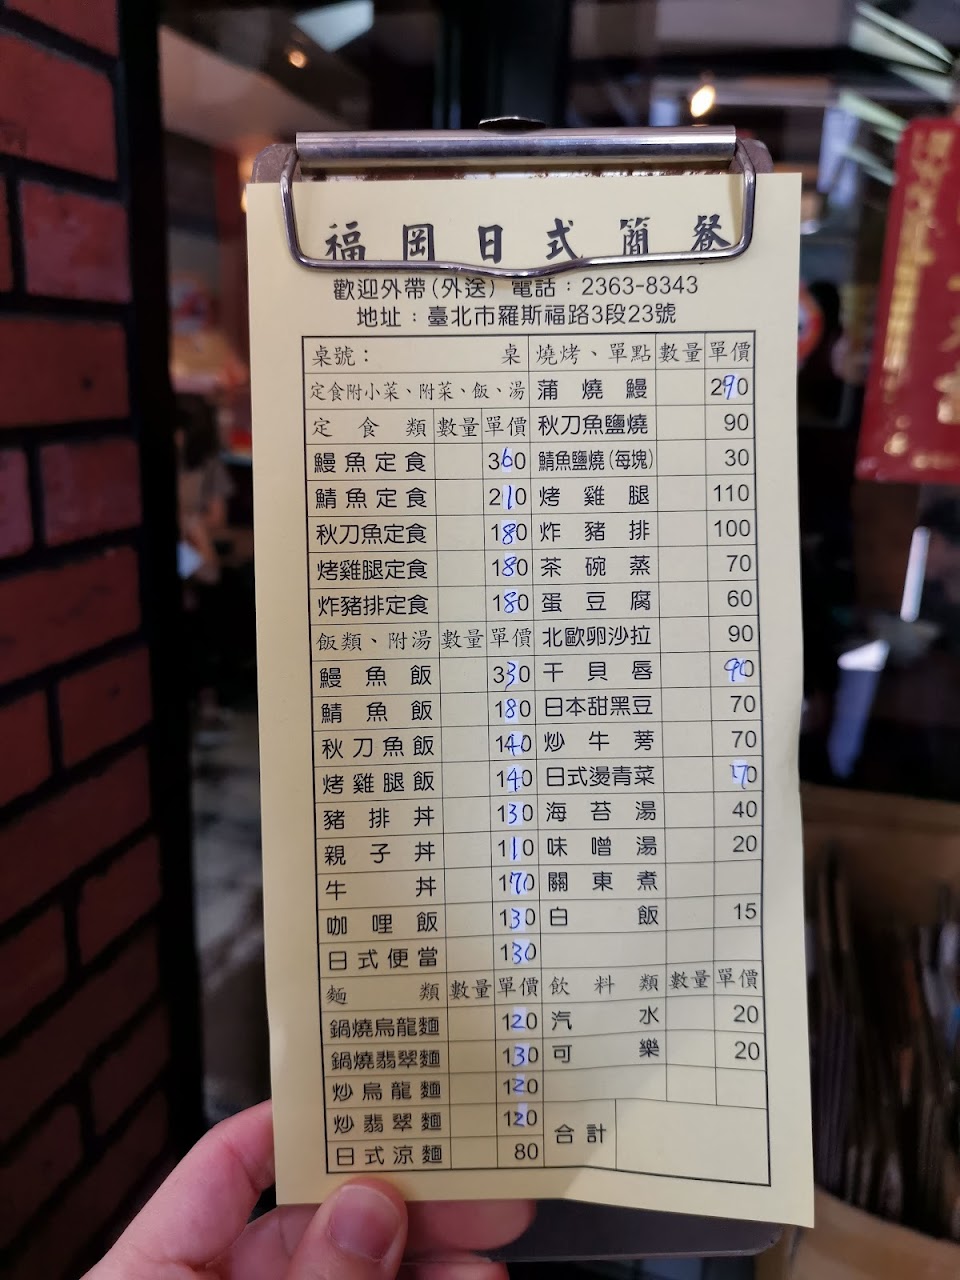 福岡日式簡餐
歡迎外帶(外送) 電話：2363-8343
地址：臺北市羅斯福路3段23號
桌號： 桌
定食附小菜、附菜、飯、湯
定食類 數量 單價
鰻魚定食 360
鯖魚定食 210
秋刀魚定食 180
烤雞腿定食 180
炸豬排定食 180
飯類、附湯 數量 單價
鰻魚飯 330
鯖魚飯 180
秋刀魚飯 140
烤雞腿飯 140
豬排丼 130
親子丼 110
牛丼 170
咖哩飯 130
日式便當 130
麵類 數量 單價
鍋燒烏龍麵 120
鍋燒翡翠麵 130
炒烏龍麵 120
炒翡翠麵 120
日式涼麵 80
燒烤、單點 數量 單價
蒲燒鰻 290
秋刀魚鹽燒 90
鯖魚鹽燒(每塊) 30
烤雞腿 110
炸豬排 100
茶碗蒸 70
蛋豆腐 60
北歐卵沙拉 90
干貝唇 90
日本甜黑豆 70
炒牛蒡 70
日式燙青菜 70
海苔湯 40
味噌湯 20
關東煮
白飯 15
飲料類 數量 單價
汽水 20
可樂 20
合計